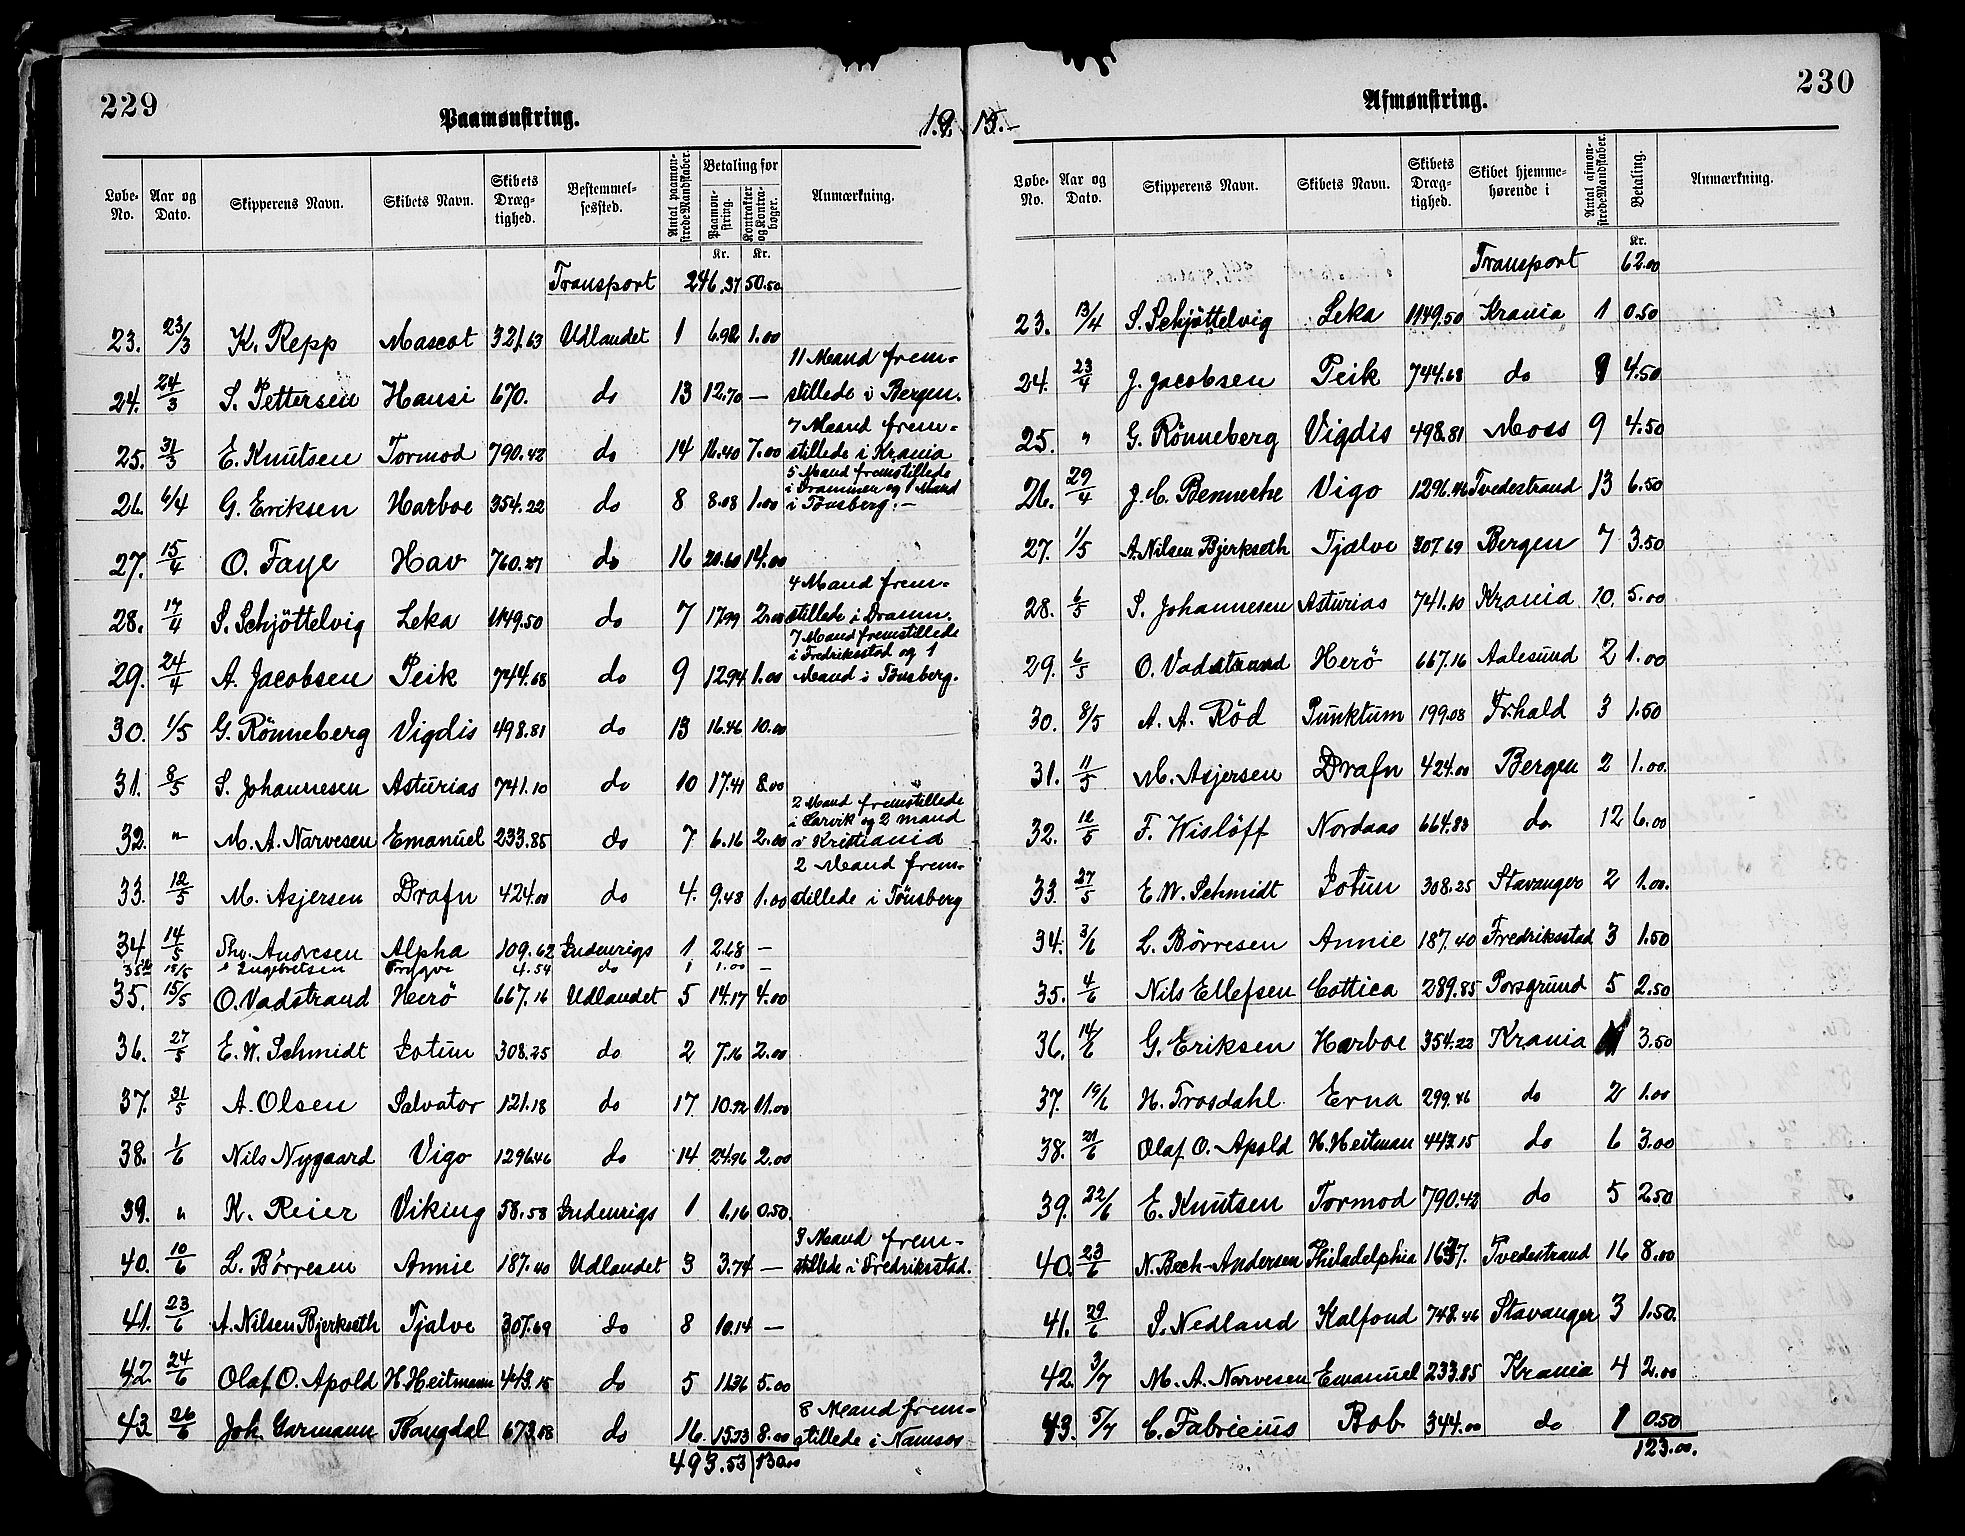 229
Paamønstring.
19
Løbe-No. Aar og Dato. Skipperens Navn. Skibets Navn. Skibets Dræg-tighed. Bestemmel-sessted. Antal paamøn-strede Mandskaber. Betaling for Paamøn-string. Kontrakter og Kontra-bøger. Anmærkning.
Kr. Kr.
Transport 246.37 50.50
23. 23/3 K. Repp Mascot 321.63 Udlandet 1 6.98 1.00
24. 24/3 S. Pettersen Hansi 670. do 13 12.70 — 11 Mand frem-stillede i Bergen.
25. 31/3 E. Knutsen Tormod 790.42 do 14 16.40 7.00 7 Mand frem-stillede i Krania
26. 6/4 G. Eriksen Harboe 354.22 do 8 8.08 1.00 5 Mand fremstillede i Drammen og 1 Mand i Tönsberg.—
27. 15/4 O. Faye Hav 760.27 do 16 20.60 14.00
28. 17/4 S. Schjöttelvig Leka 1149.50 do 7 17.99 2.00 4 Mand frem-stillede i Dramm.
29. 24/4 A. Jacobsen Peik 744.68 do 9 12.94 1.00 7 Mand fremstillede i Fredriksstad og 1 Mand i Tönsberg.
30. 1/5 G. Rönneberg Vigdis 498.81 do 13 16.46 10.00
31. 8/5 S. Johannesen Asturias 741.10 do 10 17.41 8.00
32. " M. A. Narvesen Emanuel 233.85 do 7 6.16 2.00 2 Mand fremstillede i Larvik og 2 mand i Kristiania
33. 12/5 M. Asjersen Drafn 424.00 do 4. 9.48 1.00 2 Mand frem-stillede i Tönsberg
34. 14/5 Thv. Andresen Alpha 109.62 Indenrigs 1 2.68 —
18/5 Engebretsen Trygve 4.54 do 1 1.00 —
35. 15/5 O. Vadstrand Herö 667.16 Udlandet 5 14.17 4.00
36. 27/5 E. W. Schmidt Jotun 308.25 do 2 7.16 2.00
37. 31/5 A. Olsen Salvator 121.18 do 17 10.72 11.00
38. 1/6 Nils Nygaard Vigo 1296.46 do 14 24.96 2.00
39. " K. Reier Viking 58.58 Indenrigs 1 1.16 0.50.
40. 10/6 L. Börresen Annie 187.40 Udlandet 3 3.74 — 3 Mand frem-stillede i Fredriksstad.
41. 23/6 A. Nilsen Bjerkseth Tjalve 307.69 do 8 10.14 —
42. 24/6 Olaf O. Apold H. Heitmann 443.15 do 5 11.36 5.00
43. 26/6 Joh. Garmann Haugdal 673.08 do 16. 15.73 8.00 8 Mand frem-stillede i Namsos
493.53 130.00
230
Afmønstring.
15.-
Løbe-No. Aar og Dato. Skipperens Navn. Skibets Navn. Skibets Dræg-tighed. Skibet hjemme-hørende i Antal afmøn-strede Mandskaber. Betaling. Anmærkning.
Kr.
Transport 62.00
23. 13/4 S. Schjöttelvig Leka 1149.50 Krania 1 0.50
24. 23/4 J. Jacobsen Peik 744.68 do 9 4.50
25. " G. Rönneberg Vigdis 498.81 Moss 9 4.50
26. 29/4 J. C. Benneche Vigo 1296.46 Tvedestrand 13 6.50
27. 1/5 A. Nilsen Bjerkseth Tjalve 307.69 Bergen 7 3.50
28. 6/5 S. Johannesen Asturias 741.10 Krania 10. 5.00
29. 6/5 O. Vadstrand Herö 667.16 Aalesund 2 1.00
30. 8/5 A. A. Röd Punktum 199.08 Fr.hald 3 1.50
31. 11/5 M. Asjersen Drafn 424.00 Bergen 2 1.00.
32. 12/5 F. Wislöff Nordaas 664.83 do 12 6.00
33. 27/5 E. W. Schmidt Jotun 308.25 Stavanger 2 1.00.
34. 3/6 L. Börresen Annie 187.40 Fredriksstad 3 1.50
35. 4/6 Nils Ellefsen Cottica 289.85 Porsgrund 5 2.50
36. 14/6 G. Eriksen Harboe 354.22 Krania 3.50
37. 19/6 H. Trosdahl Erna 299.46 do 2 1.00
38. 21/6 Olaf O. Apold H. Heitman 443.15 do 6 3.00
39. 22/6 E. Knutsen Tormod 790.42 do 5 2.50
40. 23/6 N. Bech-Andersen Philadelphia 1637. Tvedestrand 16 8.00
41. 29/6 S. Nedland Kalfond 748.46 Stavanger 3 1.50.
42. 3/7 M. A. Narvesen Emanuel 233.85 Krania 4 2.00
43. 5/7 C. Fabricius Bob 344.00 do 1 0.50
123.00.